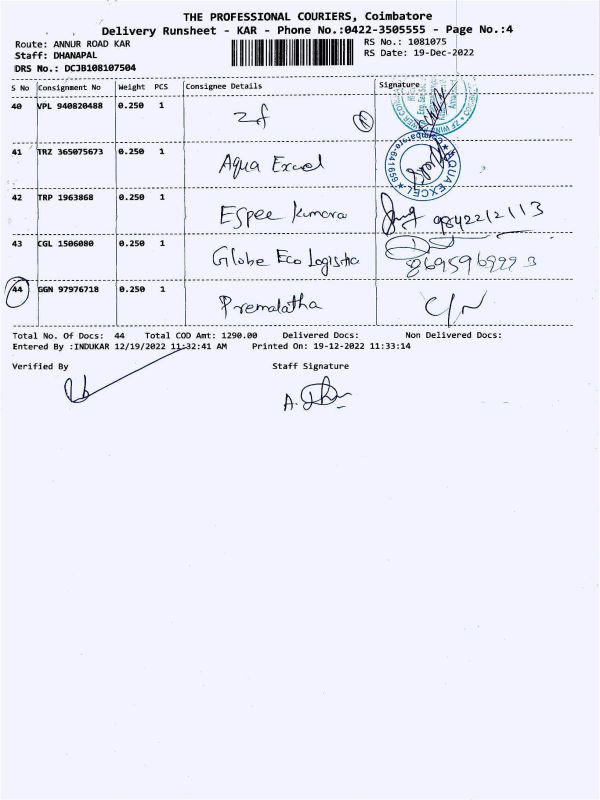 THE PROFESSIONAL COURIERS, Coimbatore
Delivery Runsheet - KAR - Phone No.:0422-3505555 - Page No.:4
Route: ANNUR ROAD KAR
Staff: DHANAPAL
DRS No.: DCJB108107504
RS No.: 1081075
RS Date: 19-Dec-2022
S No Consignment No Weight PCS Consignee Details Signature
40 VPL 940820488 0.250 1 Zf
41 TRZ 365075673 0.250 1 Aqua Excel
AQUA EXCEL
42 TRP 1963868 0.250 1 Espee Kumara 9842212113
43 CGL 1506080 0.250 1 Globe Eco Logistics
44 GGN 97976718 0.250 1 Premalatha
Total No. Of Docs: 44 Total COD Amt: 1290.00 Delivered Docs: Non Delivered Docs:
Entered By :INDUKAR 12/19/2022 11:32:41 AM Printed On: 19-12-2022 11:33:14
Verified By Staff Signature